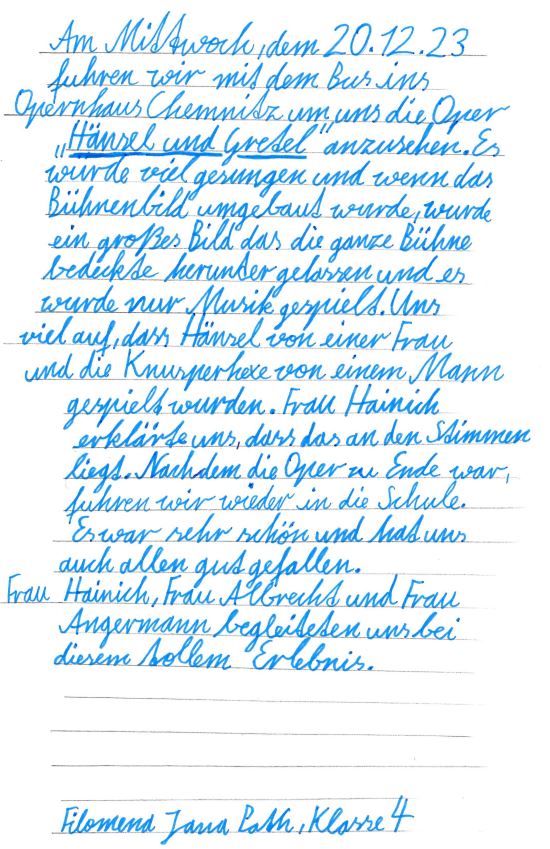 Am Mittwoch, dem 20.12.23
fuhren wir mit dem Bus ins
Opernhaus Chemnitz um uns die Oper
„Hänsel und Gretel“ anzusehen. Es
wurde viel gesungen und wenn das
Bühnenbild umgebaut wurde, wurde
ein großes Bild das die ganze Bühne
bedeckte herunter gelassen und es
wurde nur Musik gespielt. Uns
viel auf, dass Hänsel von einer Frau
und die Knusperhexe von einem Mann
gespielt wurden. Frau Hainich
erklärte uns, dass das an den Stimmen
liegt. Nachdem die Oper zu Ende war,
fuhren wir wieder in die Schule.
Es war sehr schön und hat uns
auch allen gut gefallen.
Frau Hainich, Frau Albrecht und Frau
Angermann begleiteten uns bei
diesem tollem Erlebnis.
Filomena Jana Path, Klasse 4